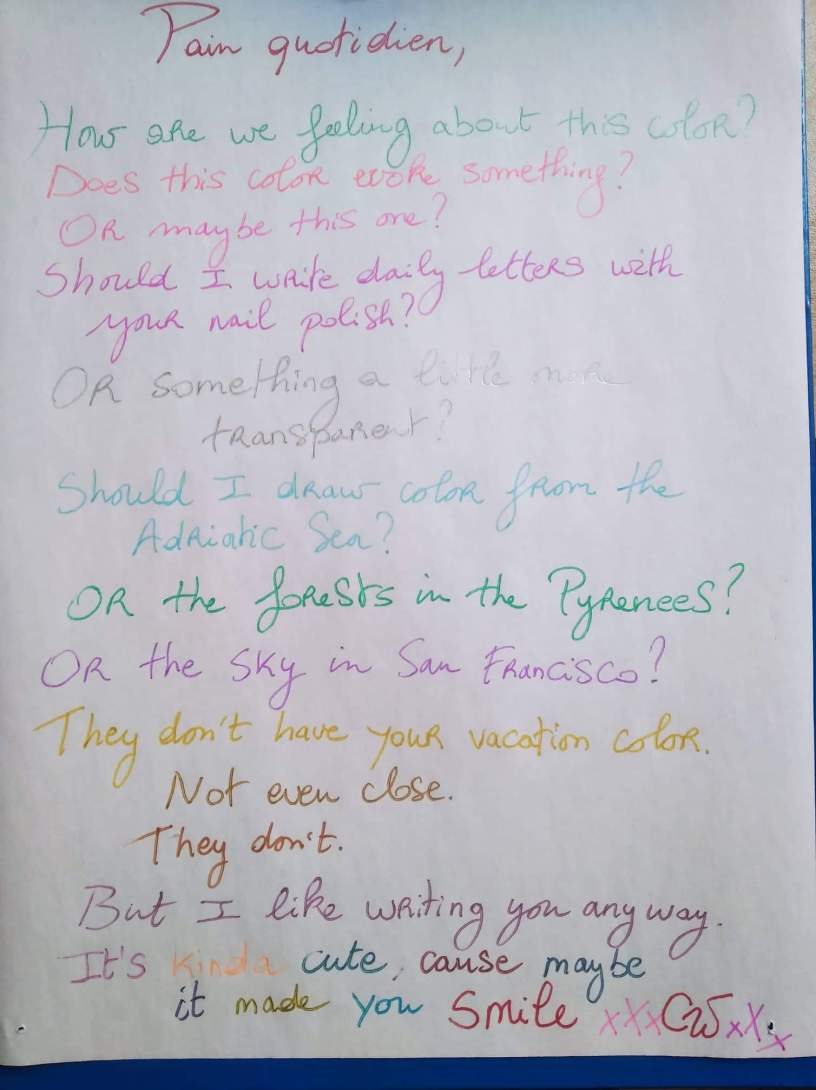 Pain quotidien,
How are we feeling about this color?
Does this color evoke something?
Or maybe this one?
Should I write daily letters with
your nail polish?
Or something a little more
transparent?
Should I draw color from the
Adriatic Sea?
Or the forests in the Pyrenees?
Or the sky in San Francisco?
They don't have your vacation color.
Not even close.
They don't.
But I like writing you anyway.
It's kinda cute, cause maybe
it made you smile xXxCWxXx